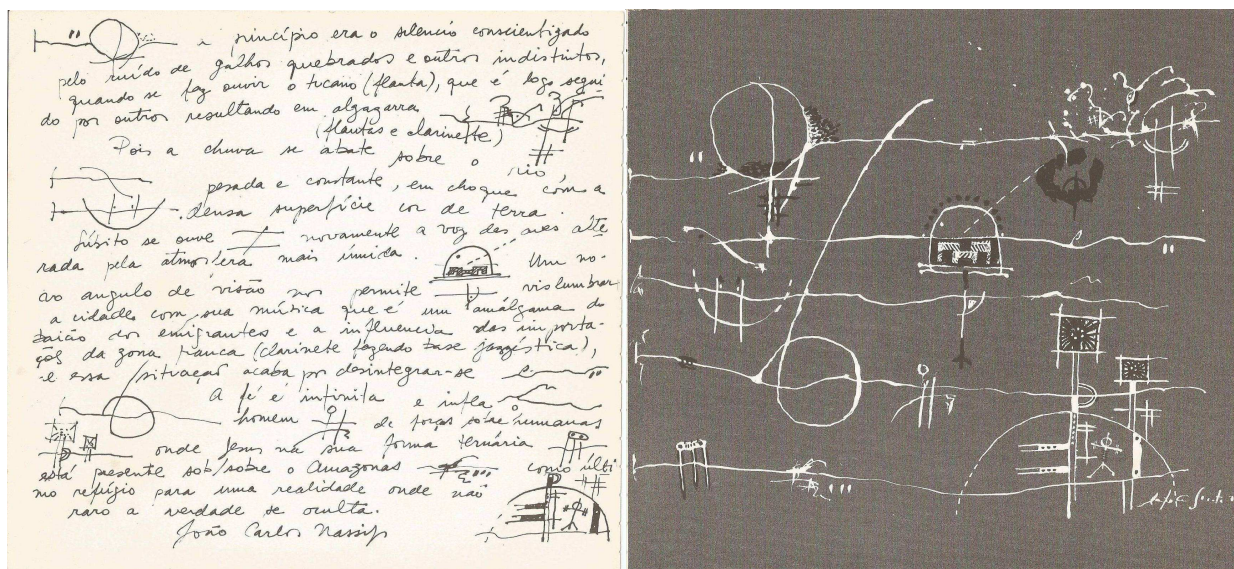 princípio era o silencio conscientizado
pelo ruído de galhos quebrados e outros indistintos,
quando se faz ouvir o tucano (flauta), que é logo segui
do por outros resultando em algazarra
(flautas e clarinete)
Pois a chuva se abate sobre o
rio
pesada e constante, em choque com a
densa superfície cor de terra.
Súbito se ouve novamente a voz das aves alte
rada pela atmosfera mais úmida. Um no-
vo angulo de visão nos permite vislumbrar
a cidade com sua música que é um amálgama do
baião dos emigrantes e a influencia das importa-
ções da zona franca (clarinete fazendo base jazzística),
e essa situação acaba por desintegrar-se
A fé é infinita e infla
homem de forças sobre humanas
onde Jesus na sua forma ternária
está presente sob/sobre o Amazonas como últi
mo refúgio para uma realidade onde não
raro a verdade se oculta.
João Carlos Nassif